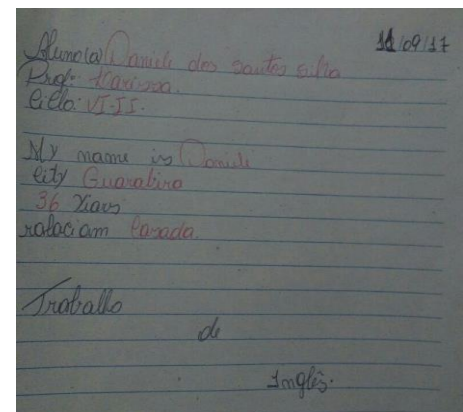 11/09/17
Aluno(a) Daniele dos santos silva
Prof: Karissa.
Ciclo: VI-II.
My name is Daniele
city Guarabira
36 Xiars
ralaciam Casada.
Trabalho
de
Inglês.